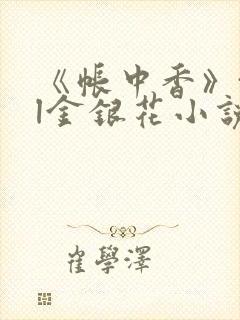 《帳中香》
|金銀花小説
崔學澤